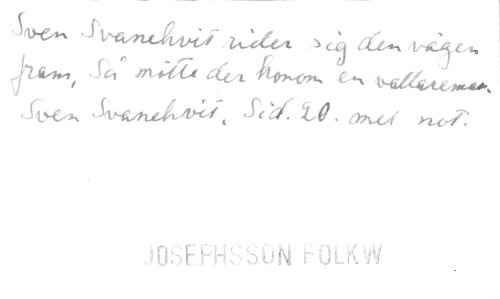 Sven Svanehvit rider sig den vägen
fram, Så mötte der honom en vallareman.
Sven Svanehvit, Sid. 20. med not.
JOSEPHSSON FOLKW